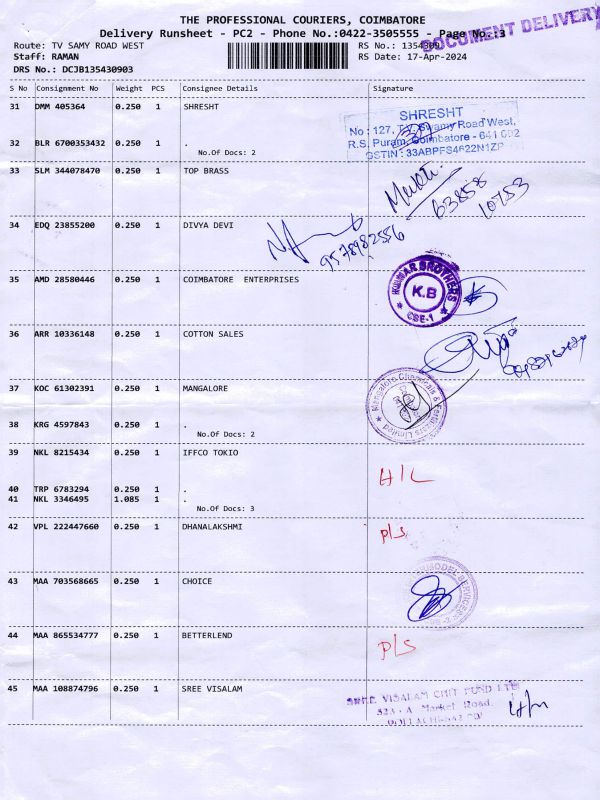 THE PROFESSIONAL COURIERS, COIMBATORE
Delivery Runsheet - PC2 - Phone No.:0422-3505555 - Page No.:3
DOCUMENT DELIVERY
Route: TV SAMY ROAD WEST
Staff: RAMAN
DRS No.: DCJB135430903
RS No.: 1354309
RS Date: 17-Apr-2024
S No Consignment No Weight PCS Consignee Details Signature
31 DMM 405364 0.250 1 SHRESHT
SHRESHT
No : 127, T.V. Swamy Road West,
R.S. Puram, Coimbatore - 641 002
GSTIN : 33ABPFS4622N1ZP
32 BLR 6700353432 0.250 1 .
No.Of Docs: 2
33 SLM 344078470 0.250 1 TOP BRASS
63858
10753
34 EDQ 23855200 0.250 1 DIVYA DEVI
9578982556
35 AMD 28580446 0.250 1 COIMBATORE ENTERPRISES
KUMAR BROTHERS
K.B
CBE-1
36 ARR 10336148 0.250 1 COTTON SALES
37 KOC 61302391 0.250 1 MANGALORE
Mangalore Chemicals & Fertilizers Limited
38 KRG 4597843 0.250 1 .
No.Of Docs: 2
39 NKL 8215434 0.250 1 IFFCO TOKIO
H/L
40 TRP 6783294 0.250 1 .
41 NKL 3346495 1.085 1 .
No.Of Docs: 3
42 VPL 222447660 0.250 1 DHANALAKSHMI
P/S
43 MAA 703568665 0.250 1 CHOICE
44 MAA 865534777 0.250 1 BETTERLEND
P/S
45 MAA 108874796 0.250 1 SREE VISALAM
SREE VISALAM CHIT FUND LTD
323-A Market Road,